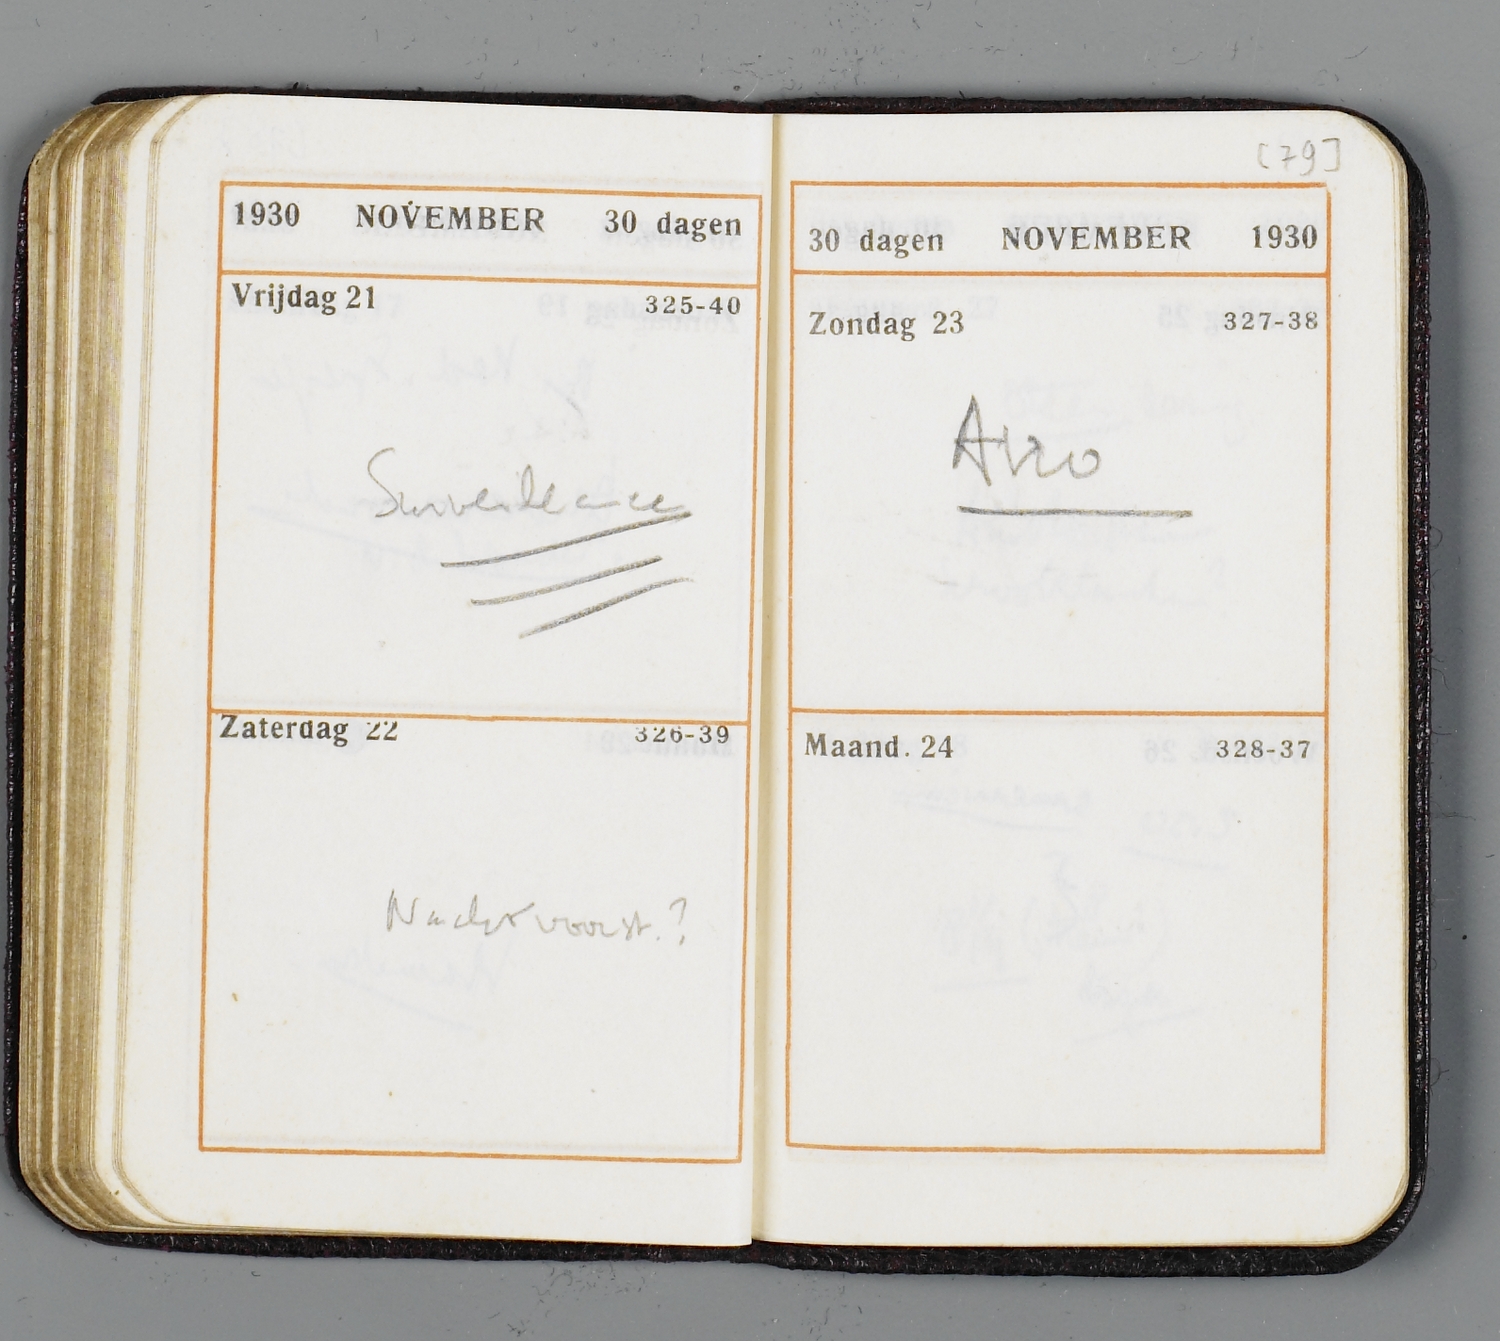 1930 NOVEMBER 30 dagen
Vrijdag 21 325-40
Surveillance
Zaterdag 22 326-39
Nachtvoorst.?
[79]
30 dagen NOVEMBER 1930
Zondag 23 327-38
Avro
Maand. 24 328-37